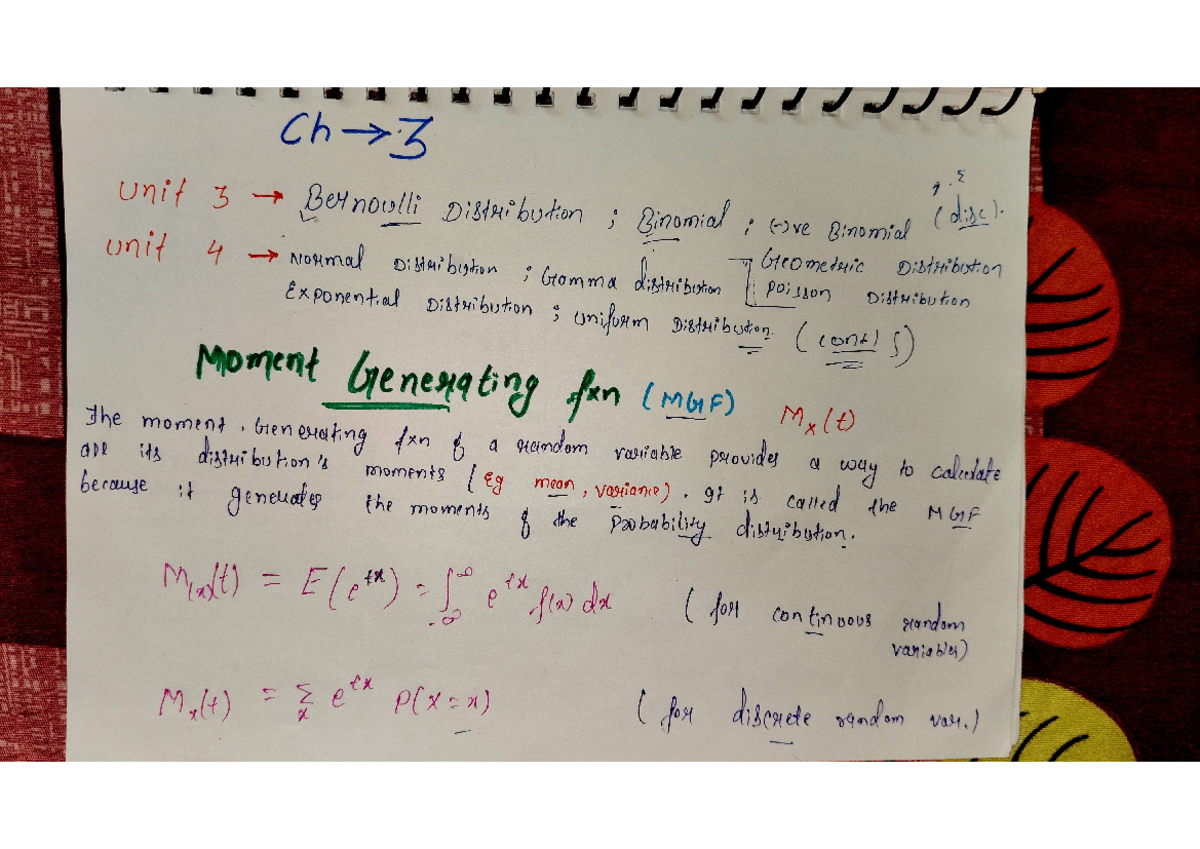 Ch → 3
Unit 3 → Bernoulli Distribution ; Binomial ; (-)ve Binomial (disc).
Σ
Geometric Distribution
Poisson Distribution
Unit 4 → Normal Distribution ; Gamma distribution
Exponential Distribution ; Uniform Distribution. (cont) ∫)
Moment Generating fxn (MGF) Mx(t)
The moment. Generating fxn of a random variable provides a way to calculate
all its distribution's moments (Eg mean, variance). It is called the MGF
because it generates the moments of the Probability distribution.
M(x)(t) = E(e^tx) = ∫_-∞^∞ e^tx f(x) dx (for continuous random
variables)
Mx(t) = Σ_x e^tx P(X=x) (for discrete random var.)